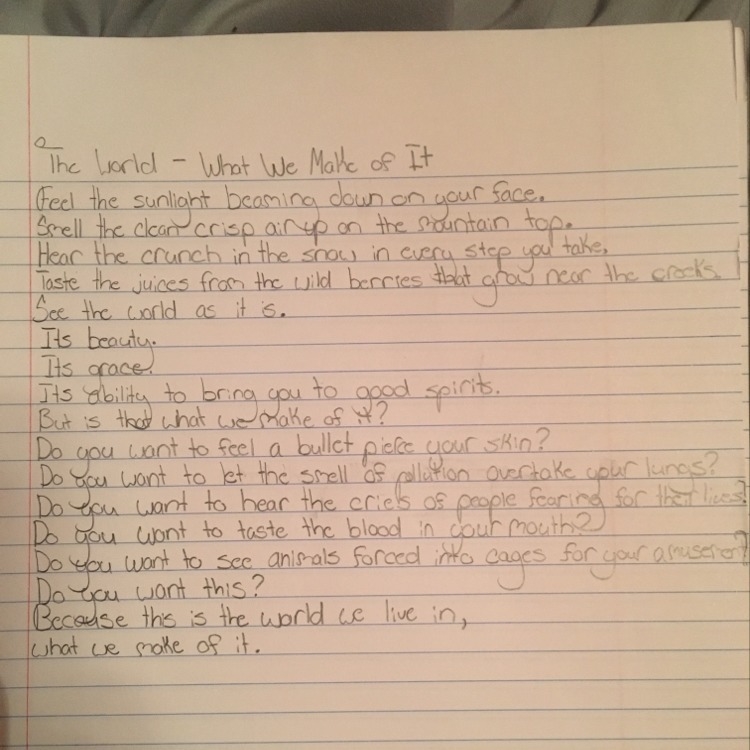 The World - What We Make of It
Feel the sunlight beaming down on your face.
Smell the clean crisp air up on the mountain top.
Hear the crunch in the snow in every step you take.
Taste the juices from the wild berries that grow near the creeks.
See the world as it is.
Its beauty.
Its grace.
Its ability to bring you to good spirits.
But is that what we make of it?
Do you want to feel a bullet pierce your skin?
Do you want to let the smell of pollution overtake your lungs?
Do you want to hear the cries of people fearing for their lives?
Do you want to taste the blood in your mouth?
Do you want to see animals forced into cages for your amusement?
Do you want this?
Because this is the world we live in,
what we make of it.